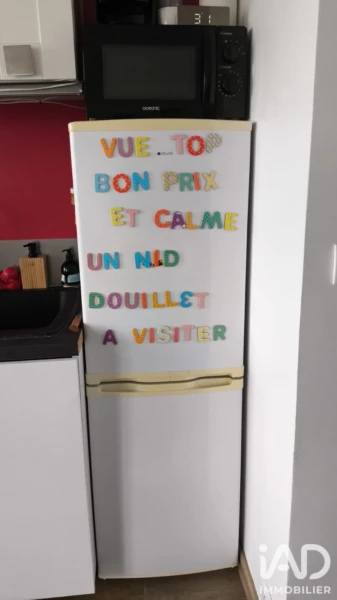 oceanic
VUE TOP
BON PRIX
ET CALME
UN NID
DOUILLET
A VISITER
iAD
IMMOBILIER